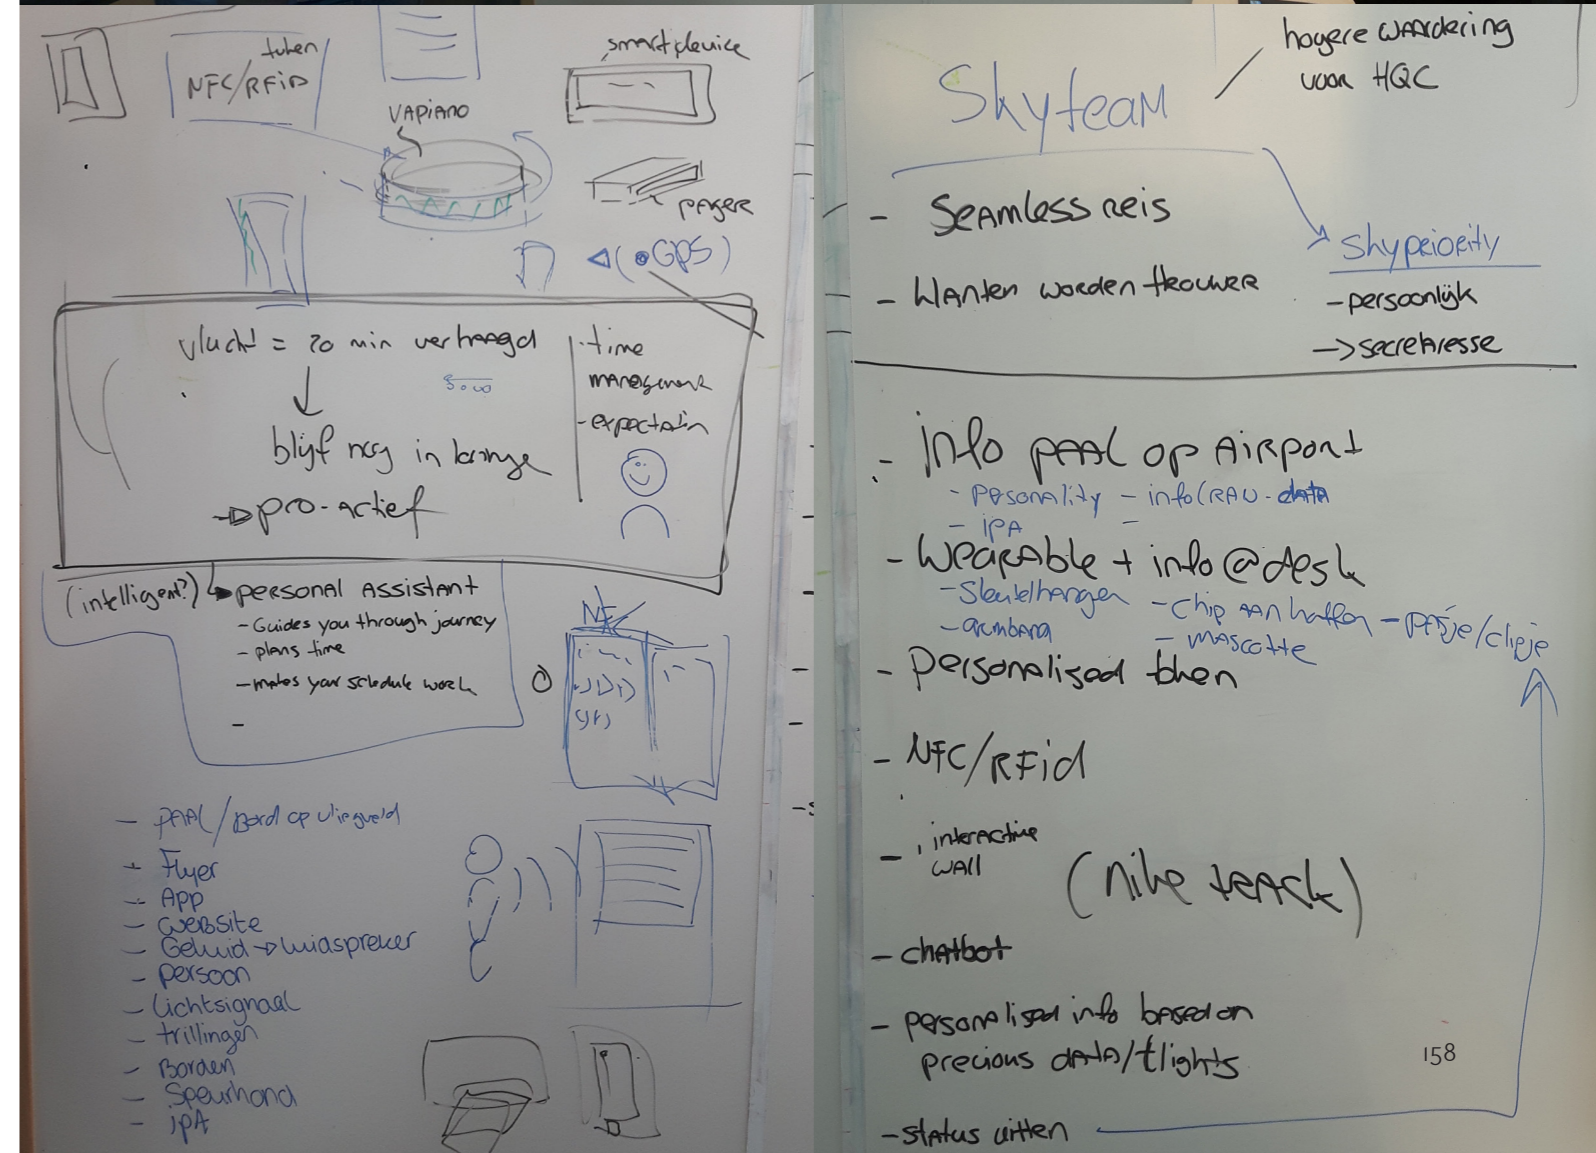 token
NFC/RFiD
smart device
VAPIANO
PAGER
(•GPS)
vlucht = 20 min vertraagd
blijf nog in lounge
pro-actief
time
management
-expectation
(intelligent?)
personal Assistant
- Guides you through journey
- plans time
- makes your schedule work
-
NFC
- PAAL/Bord op vliegveld
- Flyer
- App
- website
- Geluid → luidspreker
- persoon
- Lichtsignaal
- trillingen
- Borden
- Speurhond
- iPA
hogere WAARdering
voor HQC
Skyteam
- SeAmless reis
- klanten worden trouwer
Skypriority
- persoonlijk
→ secretaresse
- info pAAL op Airport
- Personality - info (RAW-data
- iPA -
- WeARAble + info@desk
- Sleutelhanger - Chip AAn koffer - PASje/clipje
- armband - MASCOTTE
- personalised token
- NFC/RFid
- interactive
WALL
(nike teAck)
- chatbot
- personalised info based on
precious dATA/flights
- STATUS uitten
158